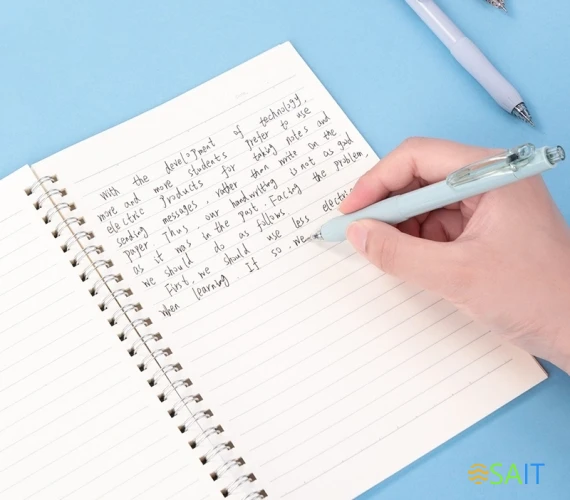 With the development of technology,
more and more students prefer to use
electric products for taking notes and
sending messages, rather than write on the
paper. Thus our handwriting is not as good
as it was in the past. Facing the problem,
we should do as follows.
First, we should use less electric
when learning. If so, we
SAIT